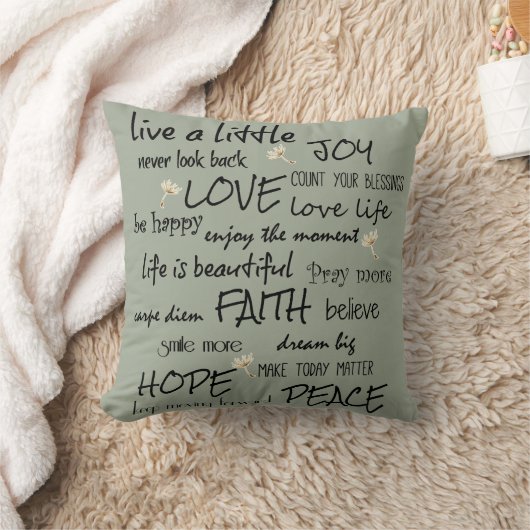 live a little
JOY
never look back
COUNT YOUR BLESSINGS
LOVE
love life
be happy
enjoy the moment
life is beautiful
Pray more
carpe diem
FAITH
believe
Smile more
dream big
MAKE TODAY MATTER
HOPE
PEACE
keep moving forward